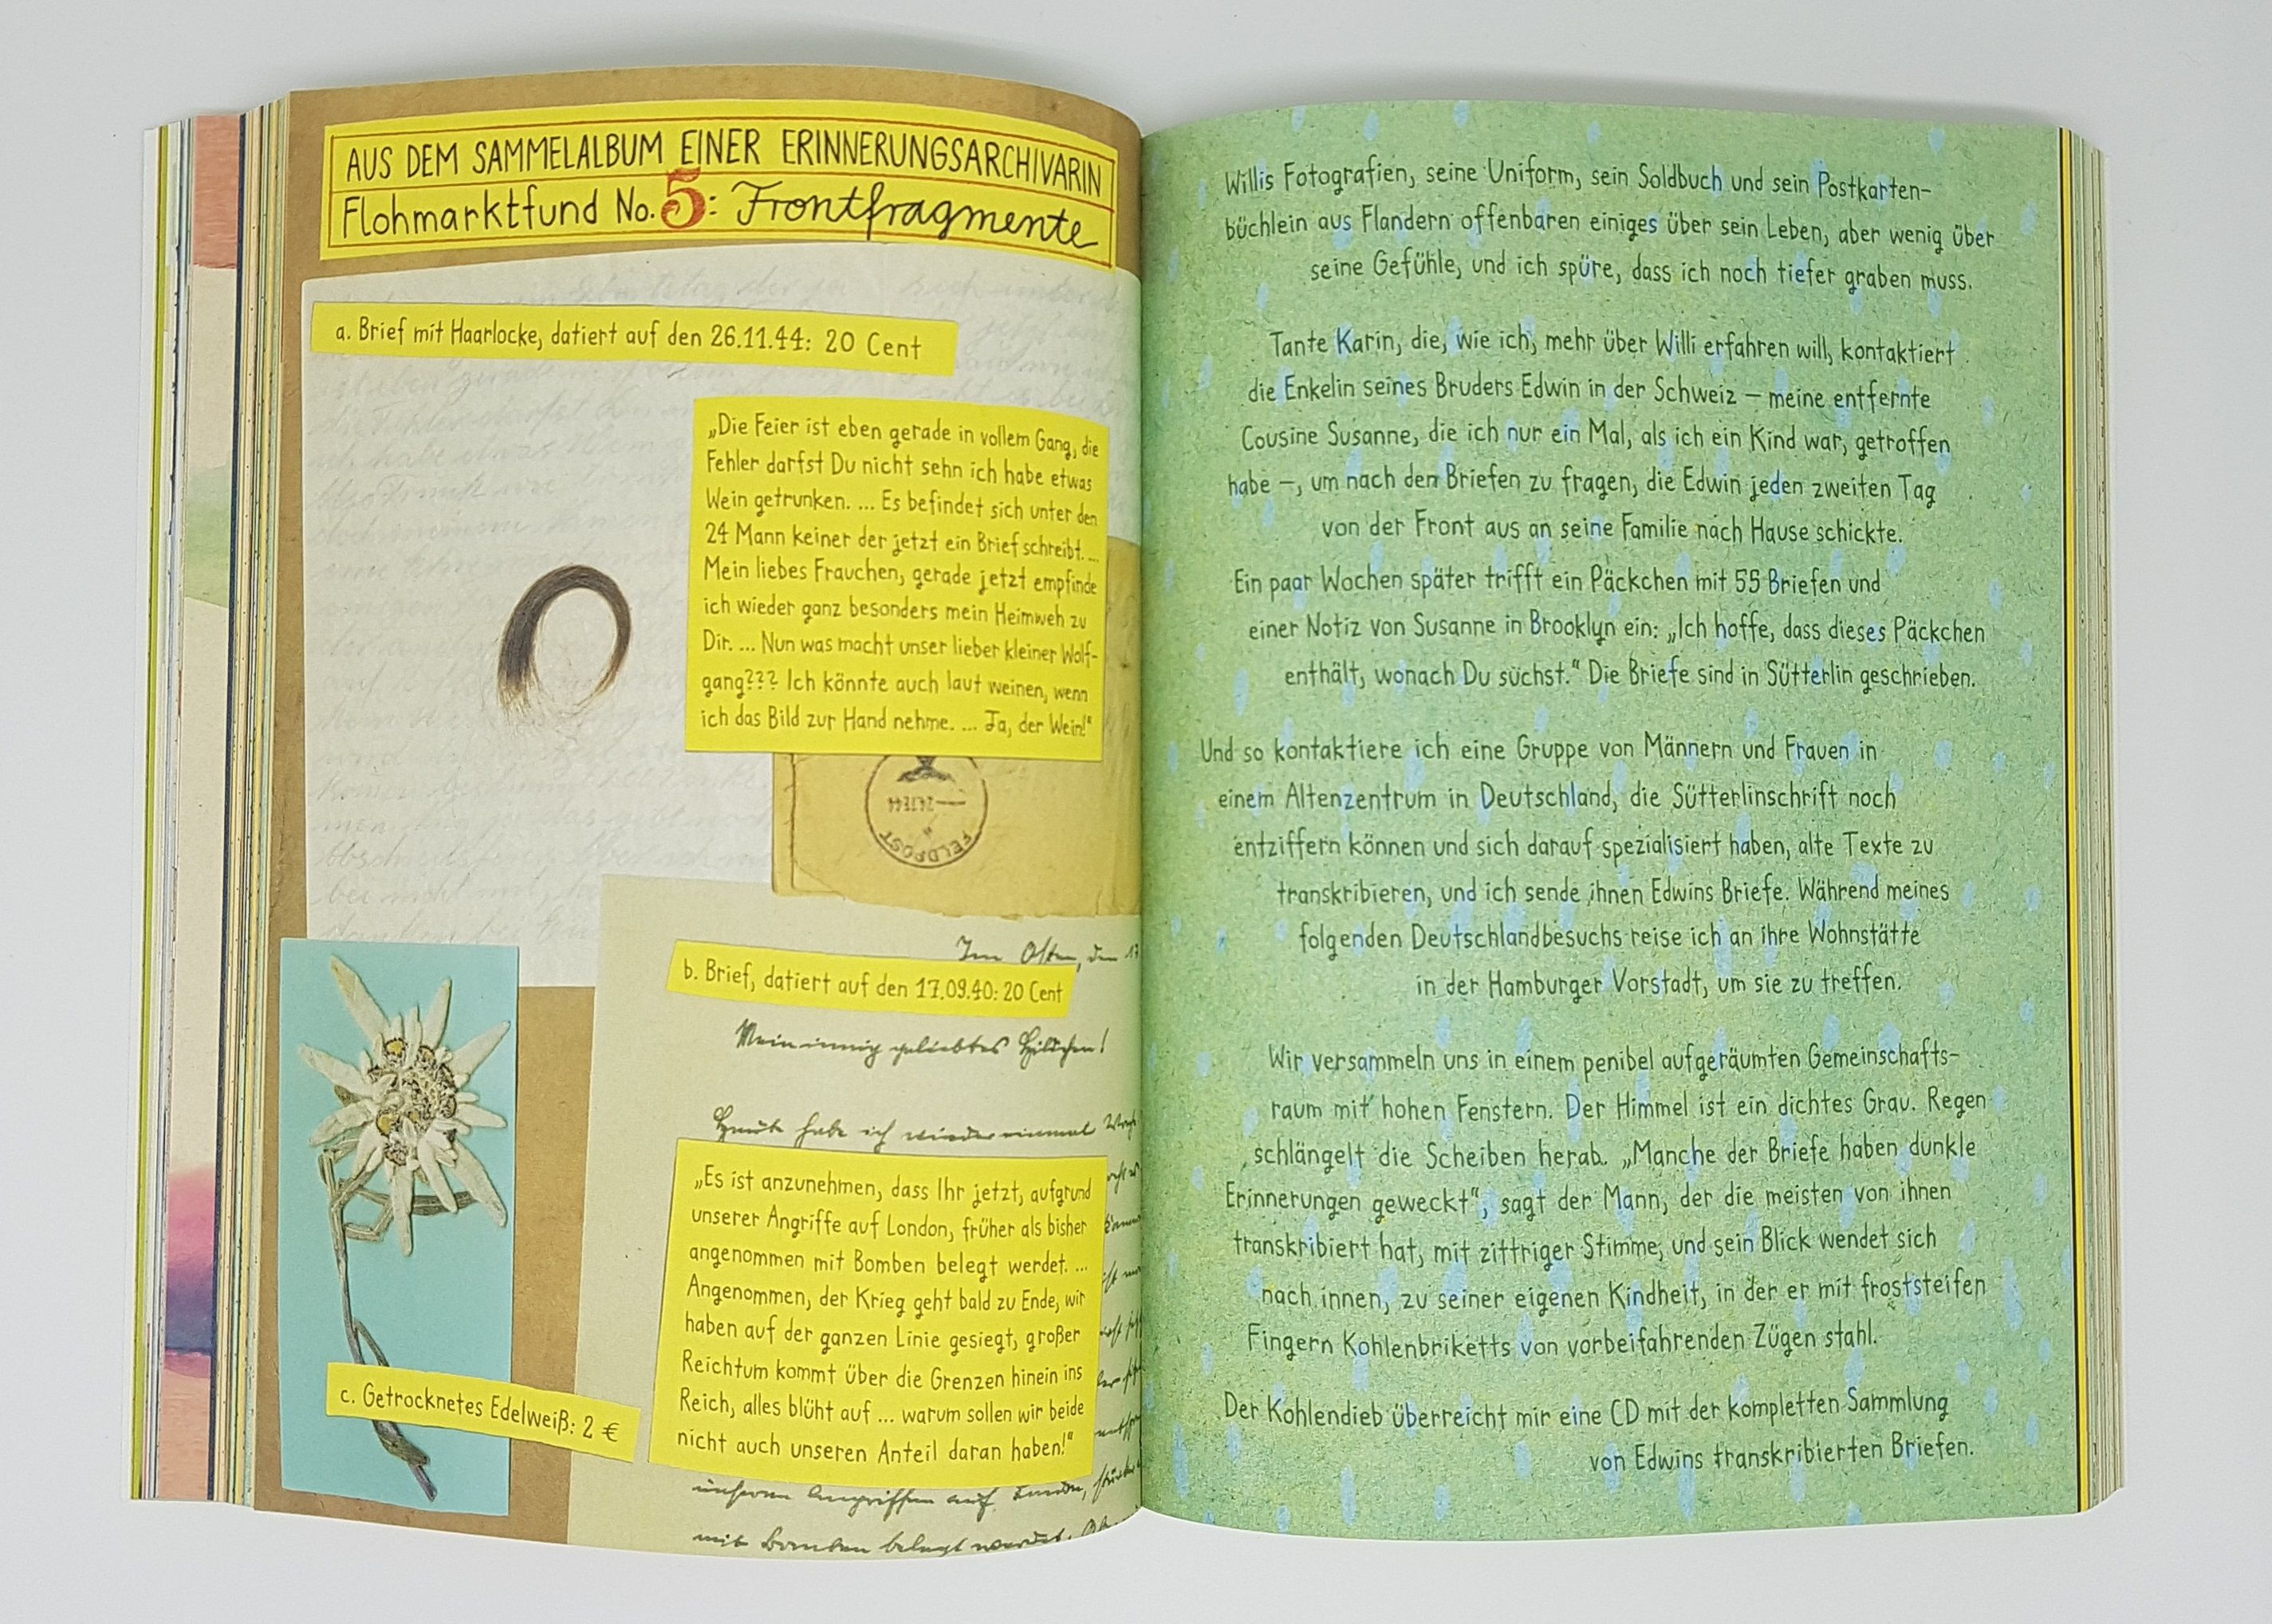 AUS DEM SAMMELALBUM EINER ERINNERUNGSARCHIVARIN
Flohmarktfund No. 5: Frontfragmente
a. Brief mit Haarlocke, datiert auf den 26.11.44: 20 Cent
„Die Feier ist eben gerade in vollem Gang, die
Fehler darfst Du nicht sehn ich habe etwas
Wein getrunken. ... Es befindet sich unter den
24 Mann keiner der jetzt ein Brief schreibt. ...
Mein liebes Frauchen, gerade jetzt empfinde
ich wieder ganz besonders mein Heimweh zu
Dir. ... Nun was macht unser lieber kleiner Wolf-
gang??? Ich könnte auch laut weinen, wenn
ich das Bild zur Hand nehme. ... Ja, der Wein!“
FELDPOST
Im Osten, den 17
b. Brief, datiert auf den 17.09.40: 20 Cent
Mein innig geliebtes Hildchen!
Heute habe ich wieder einmal
„Es ist anzunehmen, dass Ihr jetzt, aufgrund
unserer Angriffe auf London, früher als bisher
angenommen mit Bomben belegt werdet. ...
Angenommen, der Krieg geht bald zu Ende, wir
haben auf der ganzen Linie gesiegt, großer
Reichtum kommt über die Grenzen hinein ins
Reich, alles blüht auf ... warum sollen wir beide
nicht auch unseren Anteil daran haben!“
unseren Angriffen auf London,
mit Bomben belegt werdet.
c. Getrocknetes Edelweiß: 2 €
Willis Fotografien, seine Uniform, sein Soldbuch und sein Postkarten-
büchlein aus Flandern offenbaren einiges über sein Leben, aber wenig über
seine Gefühle, und ich spüre, dass ich noch tiefer graben muss.
Tante Karin, die, wie ich, mehr über Willi erfahren will, kontaktiert
die Enkelin seines Bruders Edwin in der Schweiz – meine entfernte
Cousine Susanne, die ich nur ein Mal, als ich ein Kind war, getroffen
habe –, um nach den Briefen zu fragen, die Edwin jeden zweiten Tag
von der Front aus an seine Familie nach Hause schickte.
Ein paar Wochen später trifft ein Päckchen mit 55 Briefen und
einer Notiz von Susanne in Brooklyn ein: „Ich hoffe, dass dieses Päckchen
enthält, wonach Du suchst.“ Die Briefe sind in Sütterlin geschrieben.
Und so kontaktiere ich eine Gruppe von Männern und Frauen in
einem Altenzentrum in Deutschland, die Sütterlinschrift noch
entziffern können und sich darauf spezialisiert haben, alte Texte zu
transkribieren, und ich sende ihnen Edwins Briefe. Während meines
folgenden Deutschlandbesuchs reise ich an ihre Wohnstätte
in der Hamburger Vorstadt, um sie zu treffen.
Wir versammeln uns in einem penibel aufgeräumten Gemeinschafts-
raum mit hohen Fenstern. Der Himmel ist ein dichtes Grau. Regen
schlängelt die Scheiben herab. „Manche der Briefe haben dunkle
Erinnerungen geweckt“, sagt der Mann, der die meisten von ihnen
transkribiert hat, mit zittriger Stimme, und sein Blick wendet sich
nach innen, zu seiner eigenen Kindheit, in der er mit froststeifen
Fingern Kohlenbriketts von vorbeifahrenden Zügen stahl.
Der Kohlendieb überreicht mir eine CD mit der kompletten Sammlung
von Edwins transkribierten Briefen.